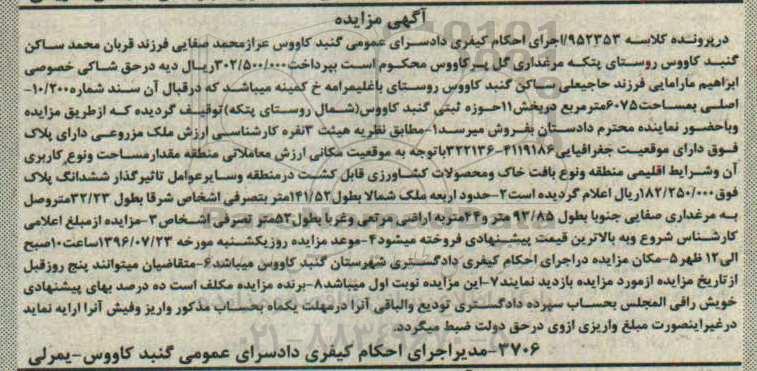 آگهی مزایده
درپرونده کلاسه ۹۵۲۳۵۳/اجرای احکام کیفری دادسرای عمومی گنبد کاووس عرازمحمد صفایی فرزند قربان محمد ساکن
گنبد کاووس روستای پتکه مرغداری گل پرکاووس محکوم است بپرداخت۳۰۲/۵۰۰/۰۰۰ریال دیه درحق شاکی خصوصی
ابراهیم مارامایی فرزند حاجیعلی ساکن گنبد کاووس روستای باغلیمرامه خ کمینه میباشد که درقبال آن سند شماره۱۰/۲۰۰-
اصلی بمساحت۶۰۷۵مترمربع دربخش۱۱حوزه ثبتی گنبد کاووس(شمال روستای پتکه)توقیف گردیده که ازطریق مزایده
وباحضور نماینده محترم دادستان بفروش میرسد۱-مطابق نظریه هیئت ۳نفره کارشناسی ارزش ملک مزروعی دارای پلاک
فوق دارای موقعیت جغرافیایی۴۱۱۹۱۸۶-۳۲۲۱۳۶باتوجه به موقعیت مکانی ارزش معاملاتی منطقه مقدارمساحت ونوع کاربری
آن وشرایط اقلیمی منطقه ونوع بافت خاک ومحصولات کشاورزی قابل کشت درمنطقه وسایرعوامل تاثیرگذار ششدانگ پلاک
فوق۱۸۲/۲۵۰/۰۰۰ریال اعلام گردیده است۲-حدود اربعه ملک شمالا بطول۱۴۱/۵۲متر بتصرفی اشخاص شرقا بطول ۳۲/۲۳متروصل
به مرغداری صفایی جنوبا بطول ۹۲/۸۵ متر و۴۴متربه اراضی مرتعی وغربا بطول۵۲متر تصرفی اشخاص۳-مزایده ازمبلغ اعلامی
کارشناس شروع وبه بالاترین قیمت پیشنهادی فروخته میشود۴-موعد مزایده روزیکشنبه مورخه ۱۳۹۶/۰۷/۲۳ساعت۱۰صبح
الی۱۲ ظهر۵-مکان مزایده دراجرای احکام کیفری دادگستری شهرستان گنبد کاووس میباشد۶-متقاضیان میتوانند پنج روزقبل
ازتاریخ مزایده ازمورد مزایده بازدید نمایند۷-این مزایده نوبت اول میباشد۸-برنده مزایده مکلف است ده درصد بهای پیشنهادی
خویش رافی المجلس بحساب سپرده دادگستری تودیع والباقی آنرا درمهلت یکماه بحساب مذکور واریز وفیش آنرا ارایه نماید
درغیراینصورت مبلغ واریزی ازوی درحق دولت ضبط میگردد.
۳۷۰۶-مدیراجرای احکام کیفری دادسرای عمومی گنبد کاووس-یمرلی